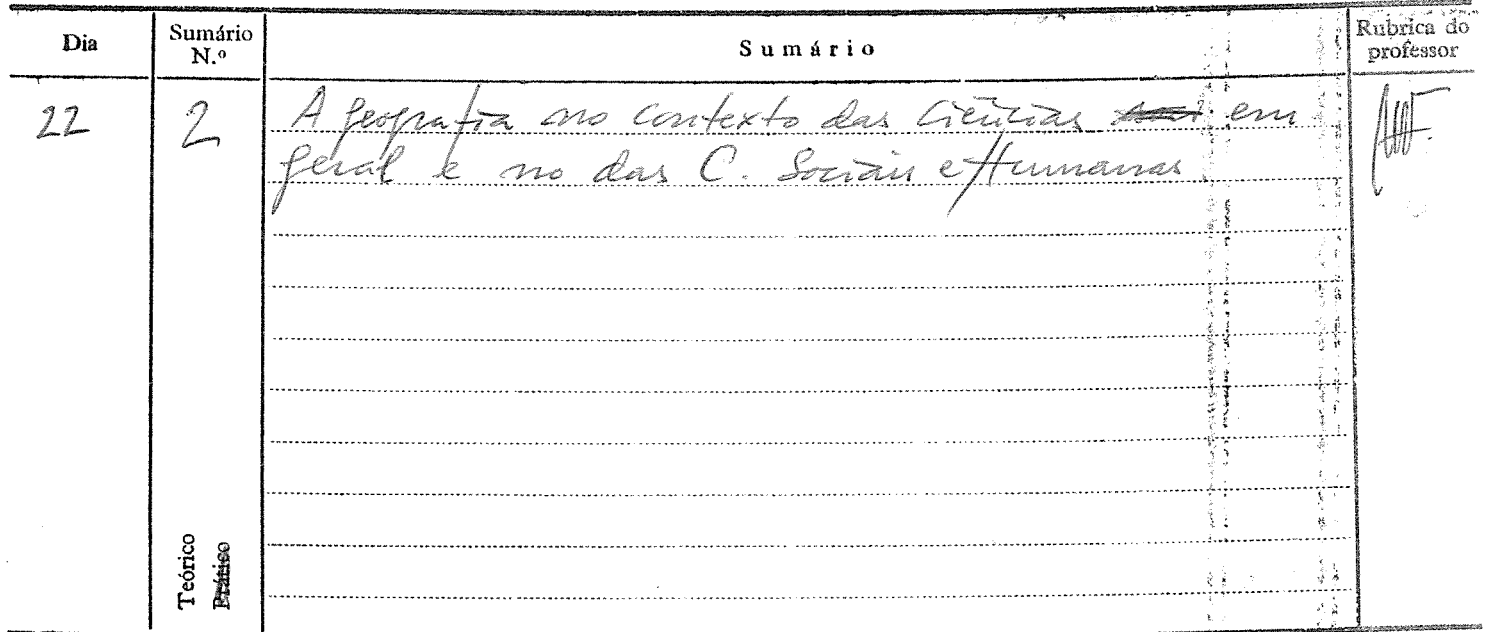 Dia
Sumário N.º
Sumário
Rubrica do professor
22
2
A geografia no contexto das Ciências em
geral e no das C. Sociais e Humanas
Teórico
Prático